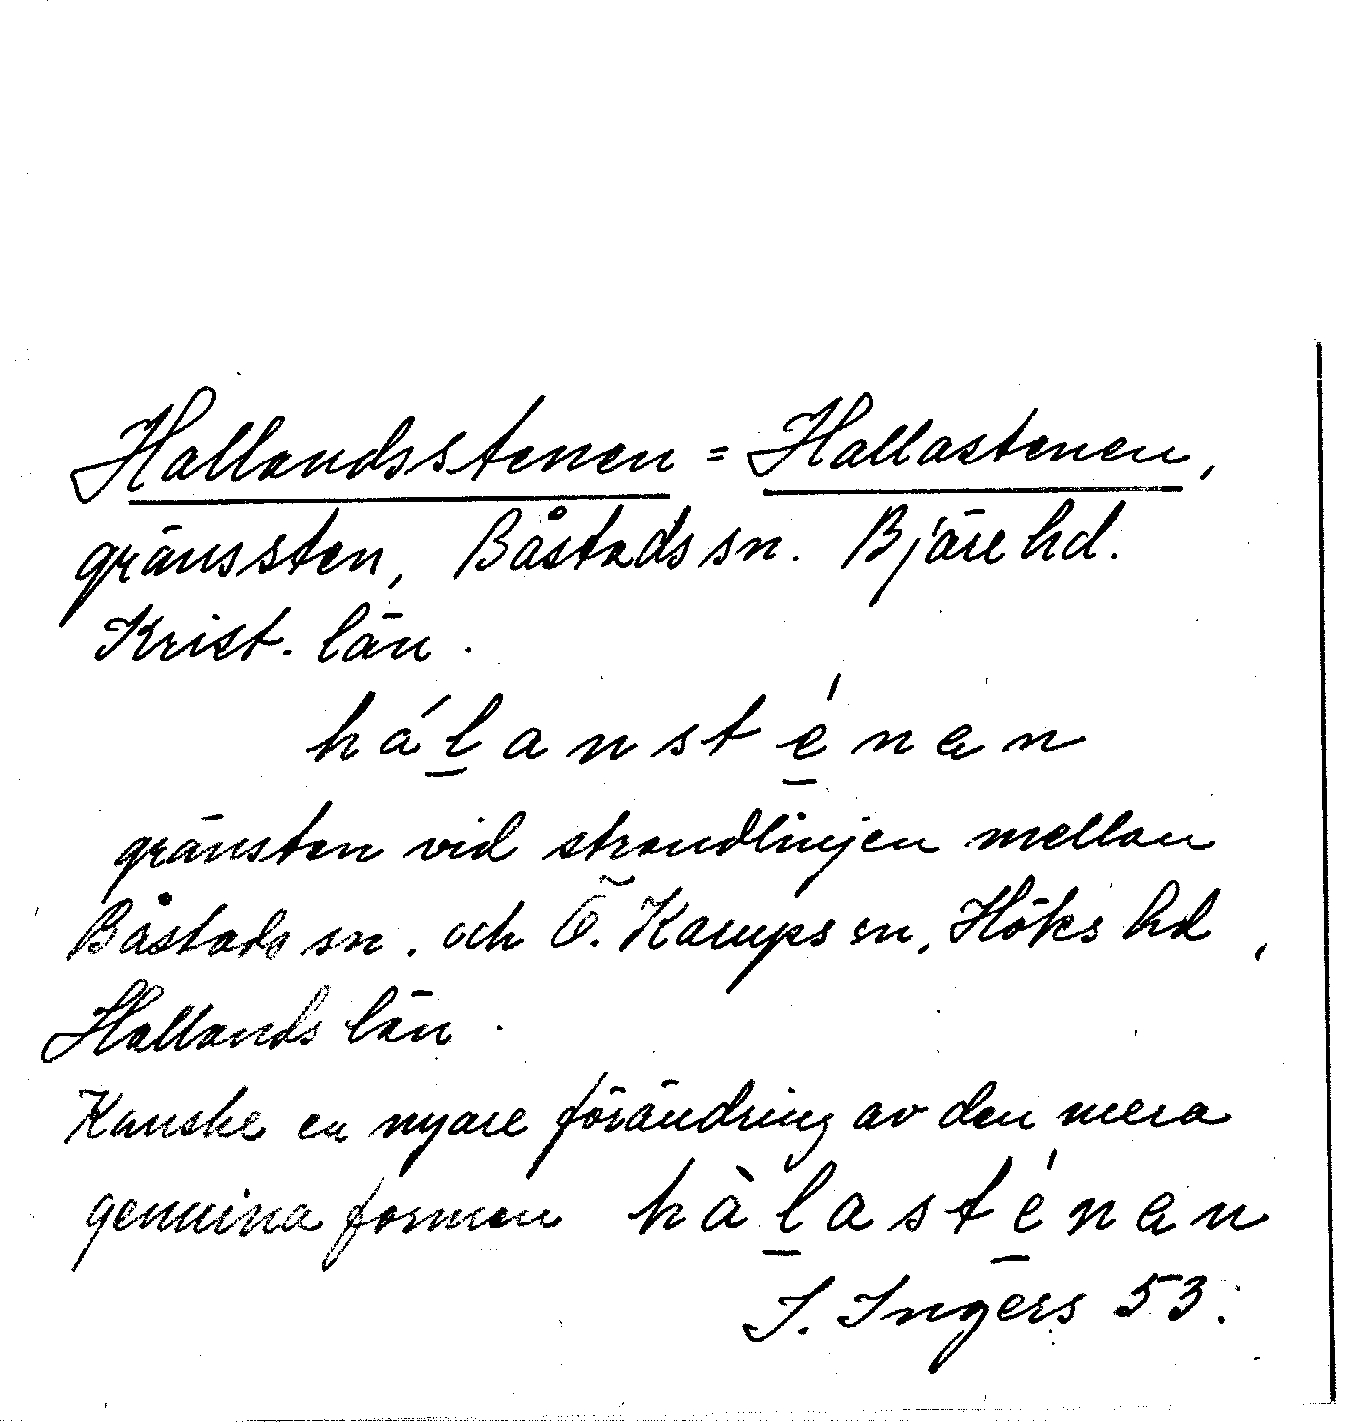 Hallandsstenen = Hallastenen,
gränssten, Båstads sn. Bjäre hd.
Krist. län.
há́l̲ansté̲nan
gränsten vid strandlinjen mellan
Båstads sn. och Ö. Karups sn, Höks hd,
Hallands län.
Kanske en nyare förändring av den mera
genuina formen hàl̲asté̲nan
I. Ingers 53.